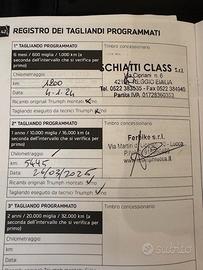 REGISTRO DEI TAGLIANDI PROGRAMMATI
1° TAGLIANDO PROGRAMMATO
Timbro concessionario
6 mesi / 600 miglia / 1.000 km (a
seconda dell'intervallo che si verifica per
primo)
SCHIATTI CLASS S.r.l.
Via Cipriani n. 6
REGGIO EMILIA
Tel. 0522
Fax 0522
Partita IVA 01728360353
Chilometraggio:
1800
km
Data:
4.1.24
Ricambi originali Triumph montati: Sì/no
Tagliando eseguito da tecnici Triumph: Sì/no
2° TAGLIANDO PROGRAMMATO
Timbro concessionario
1 anno / 10.000 miglia / 16.000 km (a
seconda dell'intervallo che si verifica per
primo)
s.r.l.
Via Martiri
Chilometraggio:
5445
km
Data:
24/03/2025
Ricambi originali Triumph montati: Sì/no
Tagliando eseguito da tecnici Triumph: Sì/no
3° TAGLIANDO PROGRAMMATO
Timbro concessionario
2 anni / 20.000 miglia / 32.000 km (a
seconda dell'intervallo che si verifica per
primo)
Chilometraggio:
km
Data:
Ricambi originali Triumph montati: Sì/no
subito